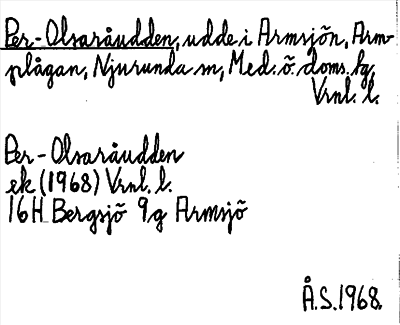 Per-Olsaråudden, udde i Armsjön, Arm-
plågan, Njurunda sn, Med. ö. doms. hg,
Vrnl. l.
Per-Olsaråudden
ek (1968) Vrnl. l.
16H Bergsjö 9g Armsjö
Å.S. 1968.